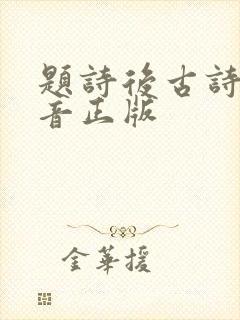 題詩後古詩
音正版
金華援